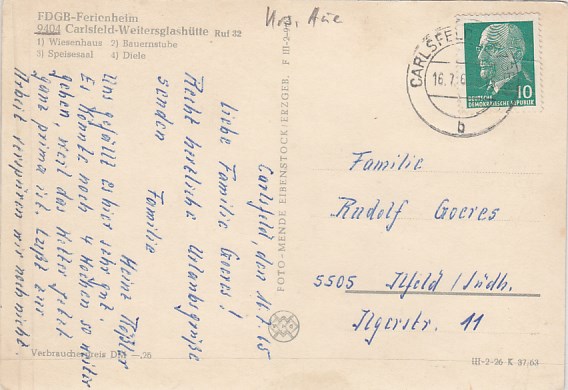 FDGB-Ferienheim
9404 Carlsfeld-Weitersglashütte Ruf 32
1) Wiesenhaus 2) Bauernstube
3) Speisesaal 4) Diele
Krs. Aue
CARLSFEL
16.7.6
b
10
DEUTSCHE
DEMOKRATISCHE REPUBLIK
Carlsfeld, den 65
Liebe Familie Goeres!
Recht herzliche Urlaubsgrüße
senden
Familie
Heinz
Uns gefällt es hier sehr gut.
Es könnte noch 4 Wochen so weiter
gehen, weil das Wetter jetzt
ganz prima ist. Lust zur
Arbeit verspüren wir noch nicht.
FOTO-MENDE EIBENSTOCK/ERZGEB. F III-2-9
Familie
Rudolf Goeres
5505 Ilfeld / Südh.
Ilgerstr. 11
Verbraucherpreis DM -,26
III-2-26 K 37/63